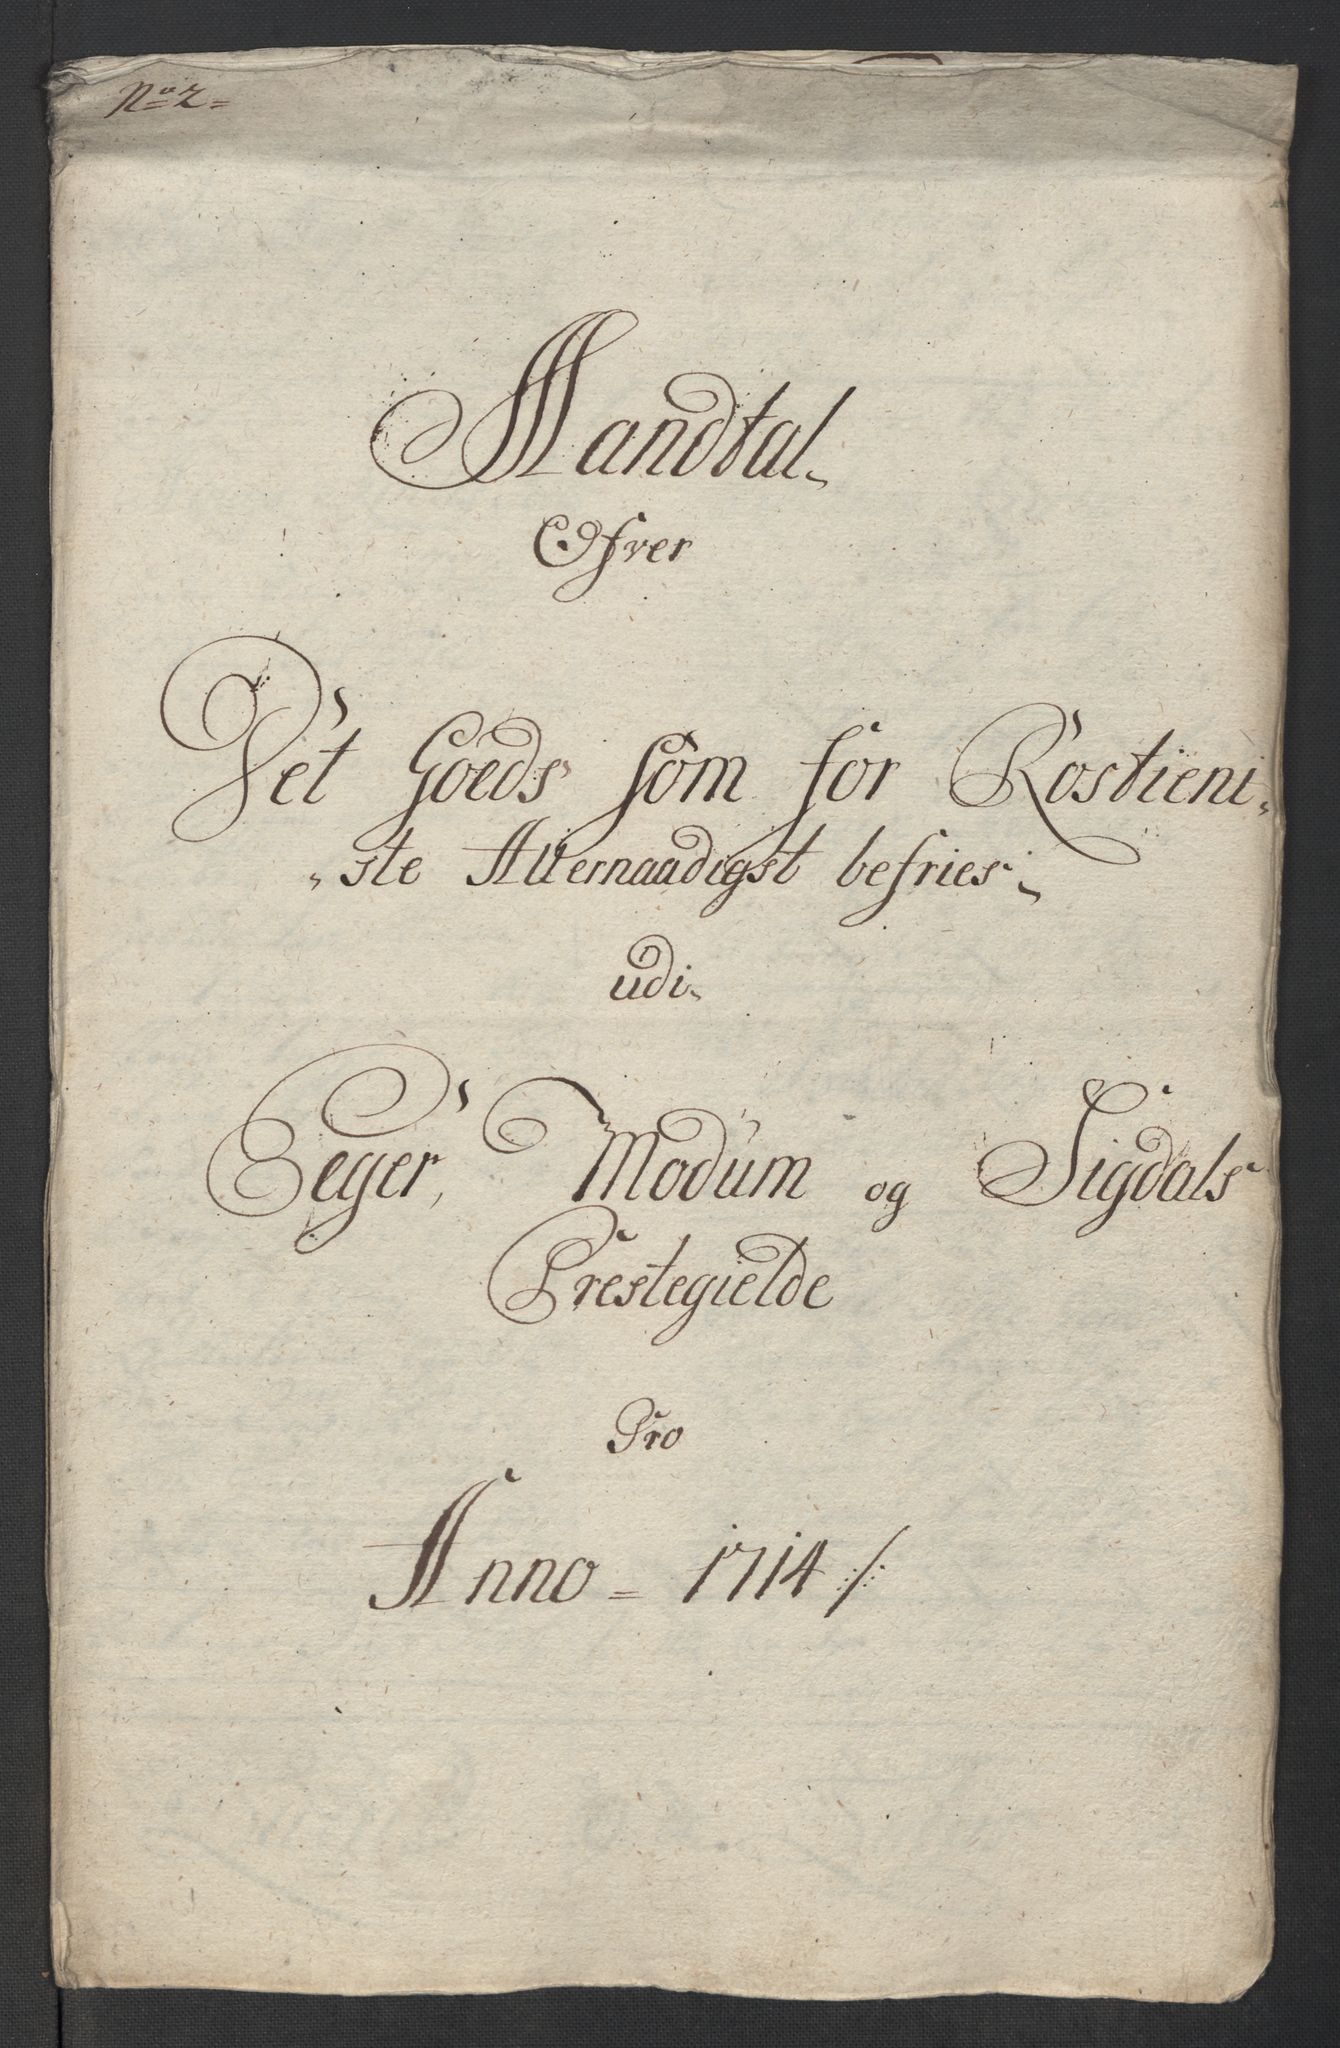 No 2
Mandtal
Ofver
Det Goeds som for Rostieni-
ste Allernaadigst befries
udi
Eeger, Modum og Sigdals
Prestegielde
Pro
Anno = 1714 /